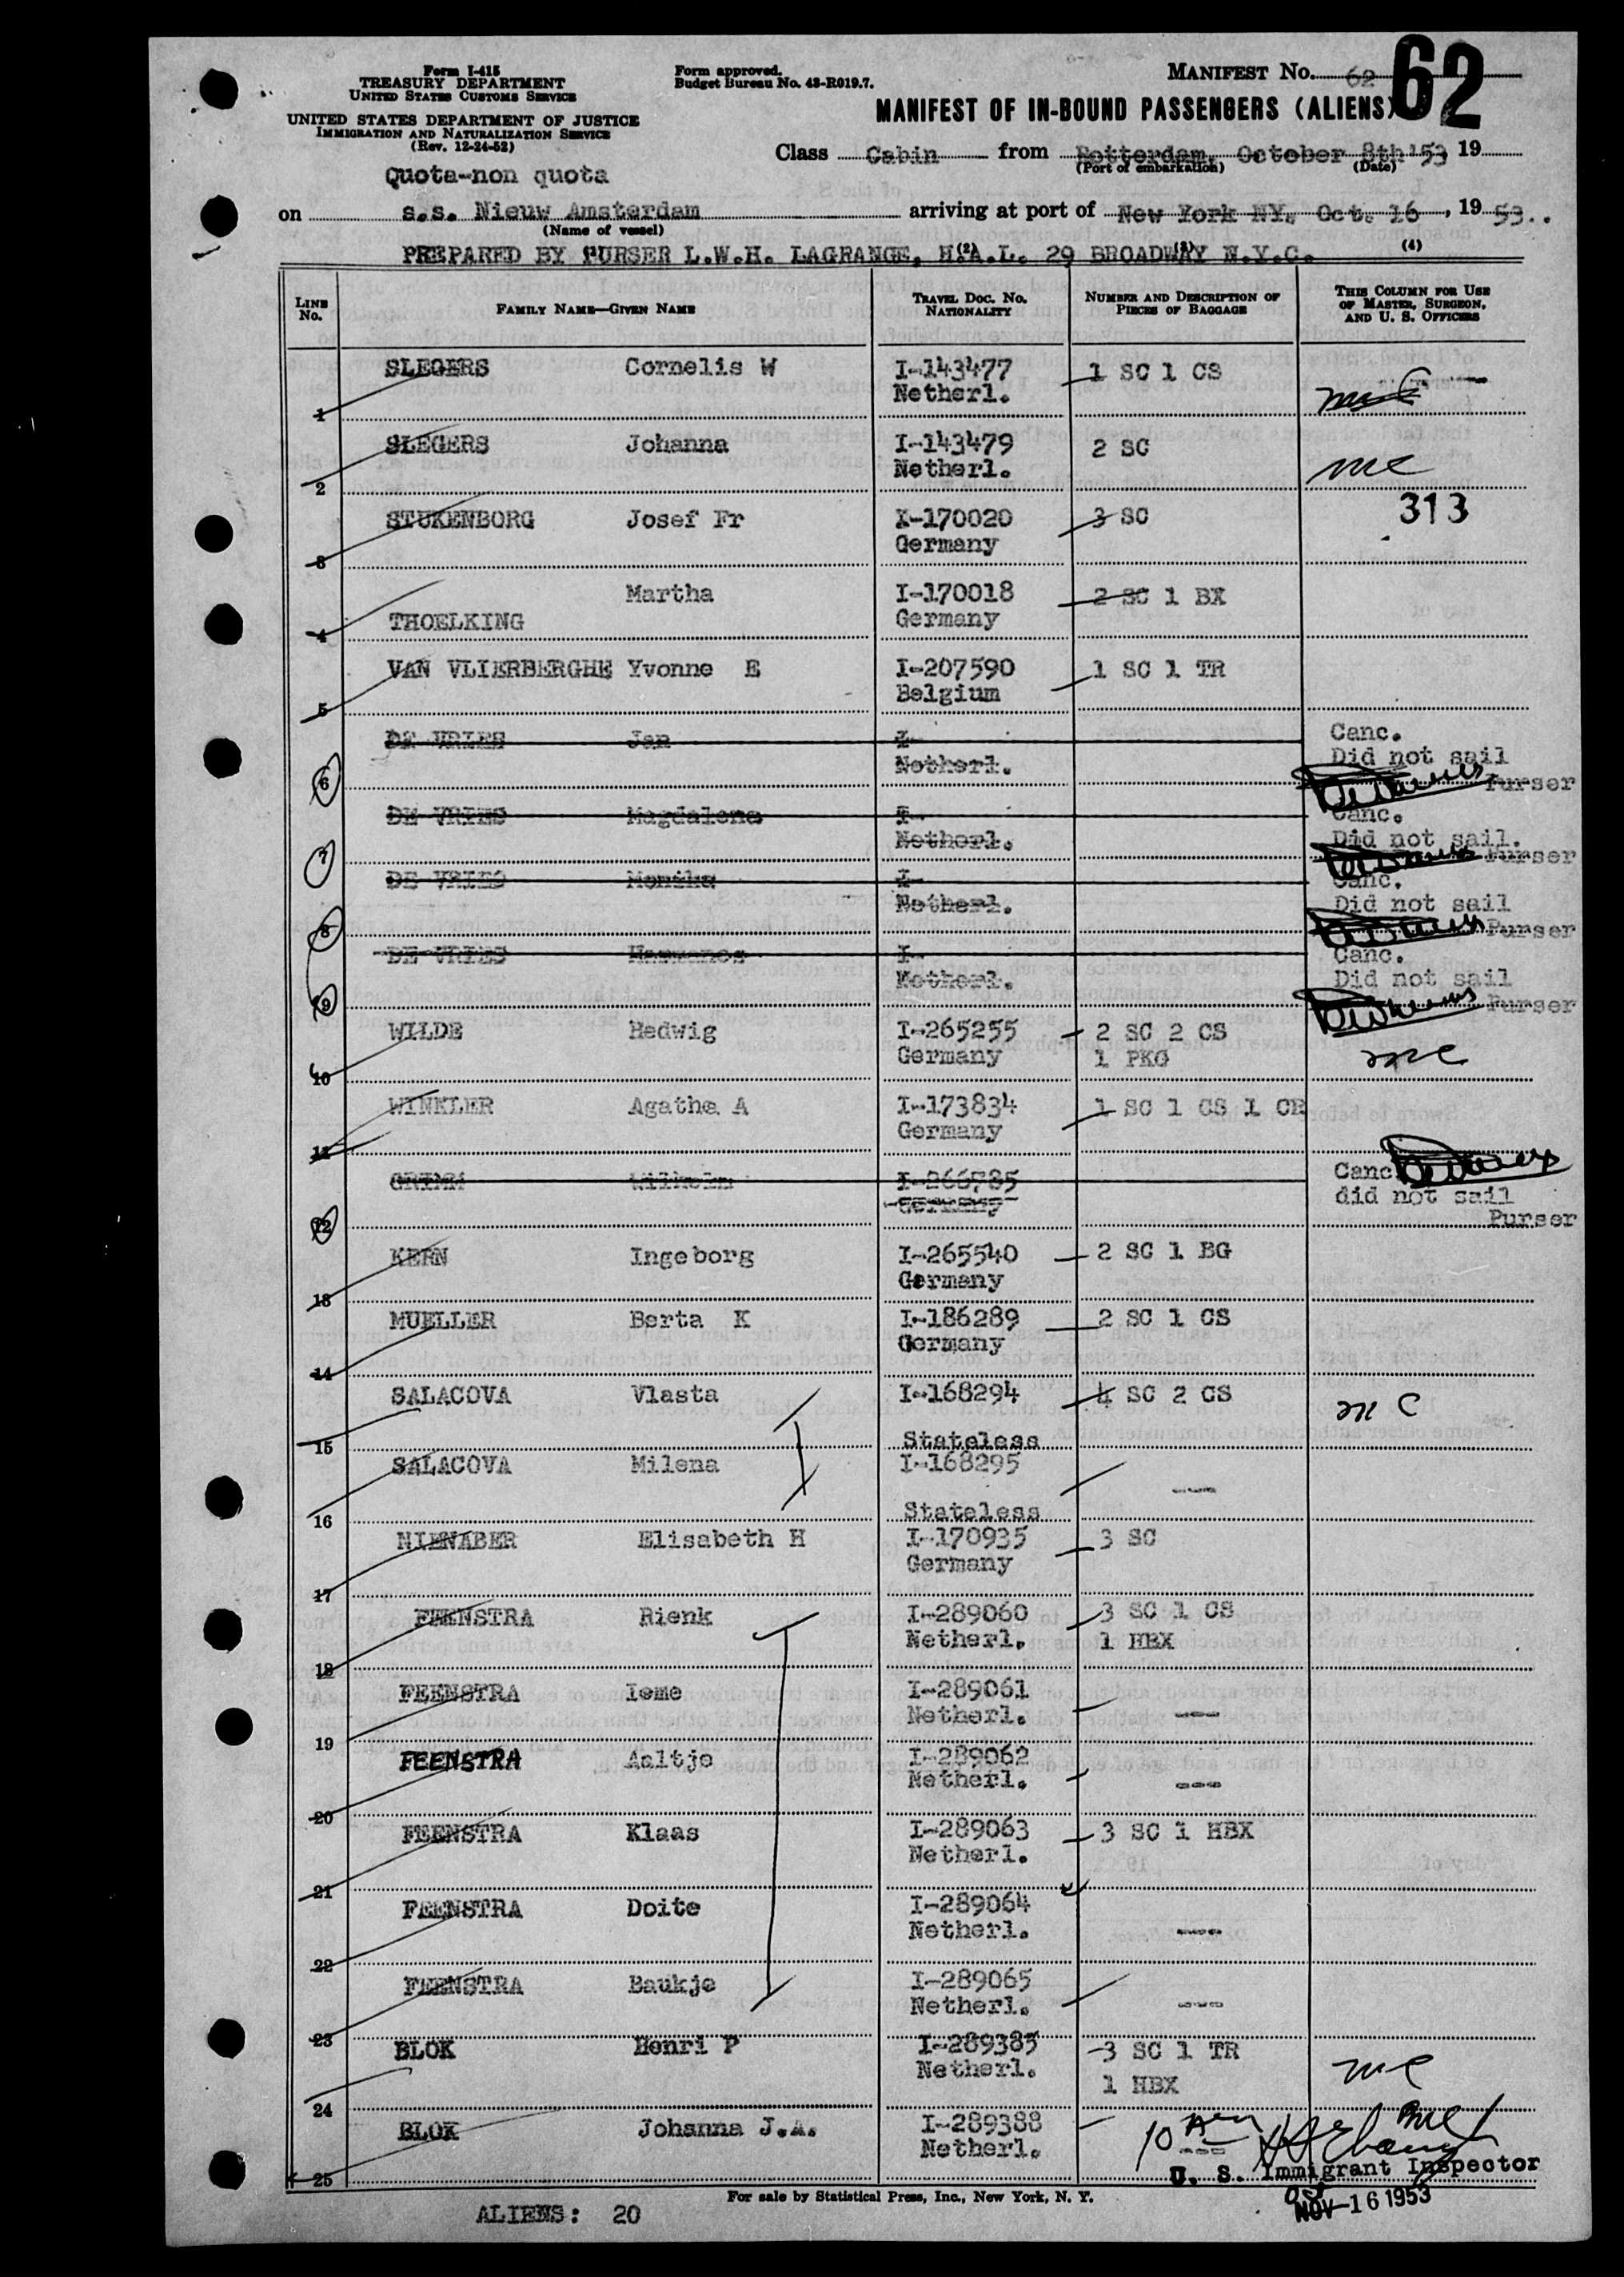 Form I-415
TREASURY DEPARTMENT
UNITED STATES CUSTOMS SERVICE
UNITED STATES DEPARTMENT OF JUSTICE
IMMIGRATION AND NATURALIZATION SERVICE
(Rev. 12-24-52)
Form approved.
Budget Bureau No. 43-R019.7.
MANIFEST No. 62
62
MANIFEST OF IN-BOUND PASSENGERS (ALIENS)
Class Cabin from Rotterdam, October 8th '53 19
(Port of embarkation) (Date)
Quota-non quota
on s.s. Nieuw Amsterdam arriving at port of New York NY, Oct. 16, 1953..
(Name of vessel)
PREPARED BY PURSER L.W.H. LAGRANGE, H.A.L. 29 BROADWAY N.Y.C.
(2) (3) (4)
LINE No. FAMILY NAME—GIVEN NAME TRAVEL DOC. No. NATIONALITY NUMBER AND DESCRIPTION OF PIECES OF BAGGAGE THIS COLUMN FOR USE OF MASTER, SURGEON, AND U. S. OFFICERS
SLEGERS Cornelis W I-143477 1 SC 1 CS
Netherl.
1
SLEGERS Johanna I-143479 2 SC
Netherl. mc
2
313
STUKENBORG Josef Fr I-170020 3 SC
Germany
3
Martha I-170018 2 SC 1 BX
THOELKING Germany
4
VAN VLIERBERGHE Yvonne E I-207590 1 SC 1 TR
Belgium
5
DE VRIES Jan I- Canc.
Netherl. Did not sail
6 Purser
DE VRIES Magdalena I- Canc.
Netherl. Did not sail.
7 Purser
DE VRIES Monika I- Canc.
Netherl. Did not sail
8 Purser
DE VRIES I- Canc.
Netherl. Did not sail
9 Purser
WILDE Hedwig I-265255 2 SC 2 CS
Germany 1 PKG mc
10
WINKLER Agatha A I-173834 1 SC 1 CS 1 CR
Germany
11
GRIMM Wilhelm I-266785 Canc.
Germany did not sail
12 Purser
KERN Ingeborg I-265540 2 SC 1 BG
Germany
13
MUELLER Berta K I-186289 2 SC 1 CS
Germany
14
SALACOVA Vlasta I-168294 4 SC 2 CS mc
15 Stateless
SALACOVA Milena I-168295 ---
Stateless
16
NIENABER Elisabeth H I-170935 3 SC
Germany
17
FEENSTRA Rienk I-289060 3 SC 1 CS
Netherl. 1 HBX
18
FEENSTRA Ieme I-289061
Netherl. ---
19
FEENSTRA Aaltje I-289062
Netherl. ---
20
FEENSTRA Klaas I-289063 3 SC 1 HBX
Netherl.
21
FEENSTRA Doite I-289064
Netherl. ---
22
FEENSTRA Baukje I-289065
Netherl. ---
23
BLOK Henri P I-289385 3 SC 1 TR
Netherl. 1 HBX mc
24
BLOK Johanna J.A. I-289388 ---
Netherl.
25
10 Am
U. S. Immigrant Inspector
For sale by Statistical Press, Inc., New York, N. Y.
NOV 16 1953
ALIENS: 20